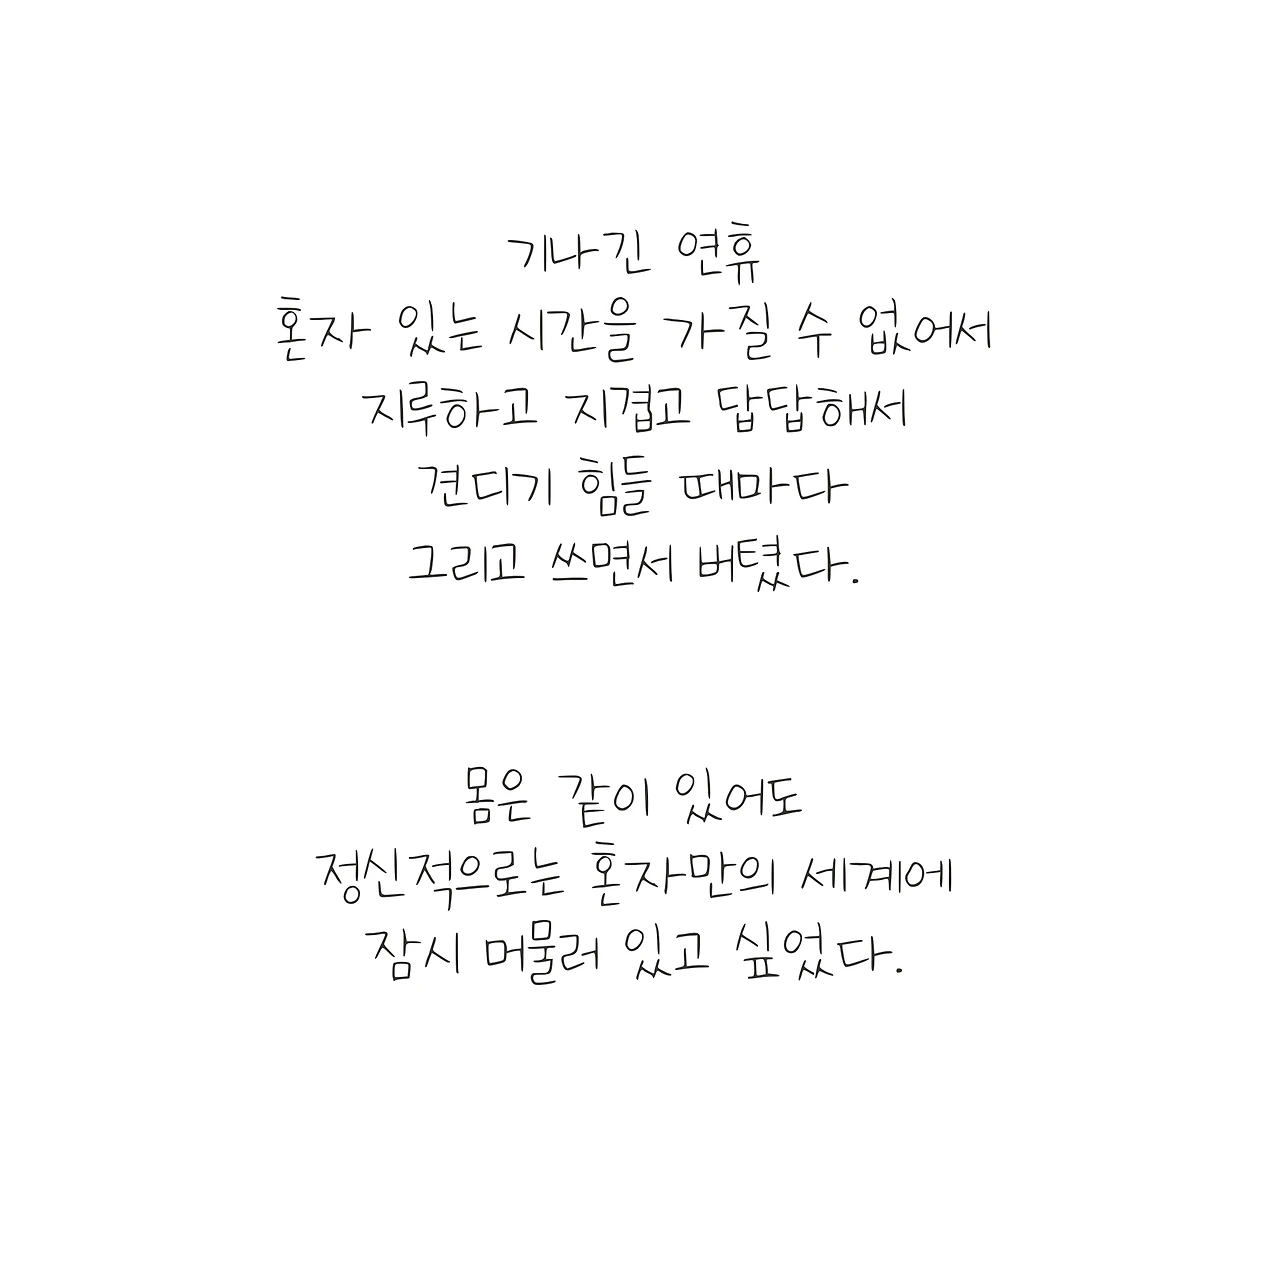 기나긴 연휴
혼자 있는 시간을 가질 수 없어서
지루하고 지겹고 답답해서
견디기 힘들 때마다
그리고 쓰면서 버텼다.
몸은 같이 있어도
정신적으로는 혼자만의 세계에
잠시 머물러 있고 싶었다.